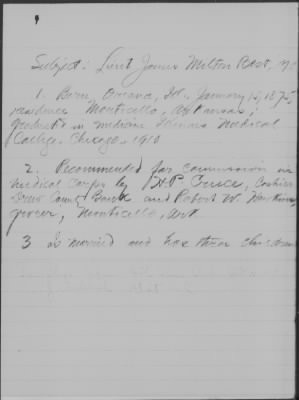 Subject: Lieut James Milton Best, MC
1. Born, Oreana, Ill, January 15, 1875,
residence Monticello, Arkansas;
graduate in medicine Illinois Medical
College, Chicago, 1910
2. Recommended for commission in
Medical Corps by Cashier
Drew County Bank and Robert W.
grocer, Monticello, Ark
3 is married and has three children